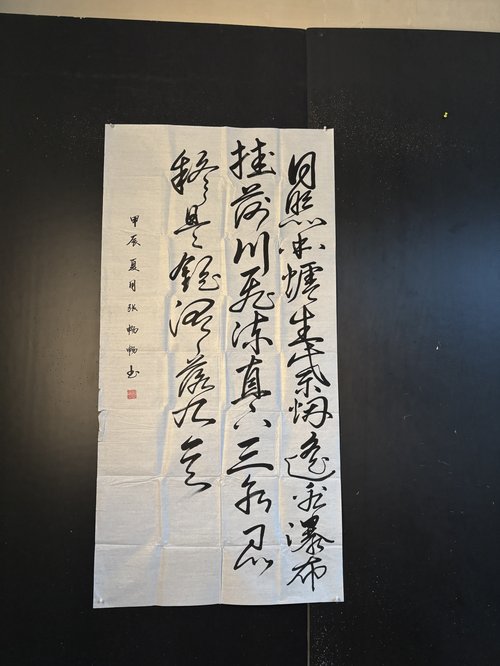 日照香爐生紫烟遥看瀑布
挂前川飛流直下三千尺
疑是銀河落九天
甲辰夏月张畅畅书